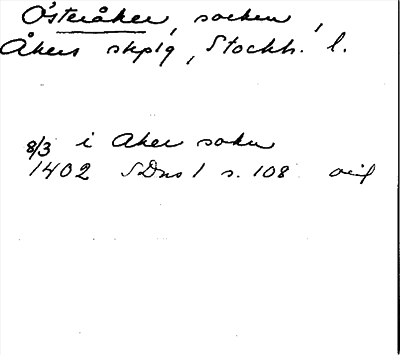 Österåker, socken,
Åkers skplg, Stockh. l.
8/3 i Aker sokn
1402 SDns 1 s. 108 orig